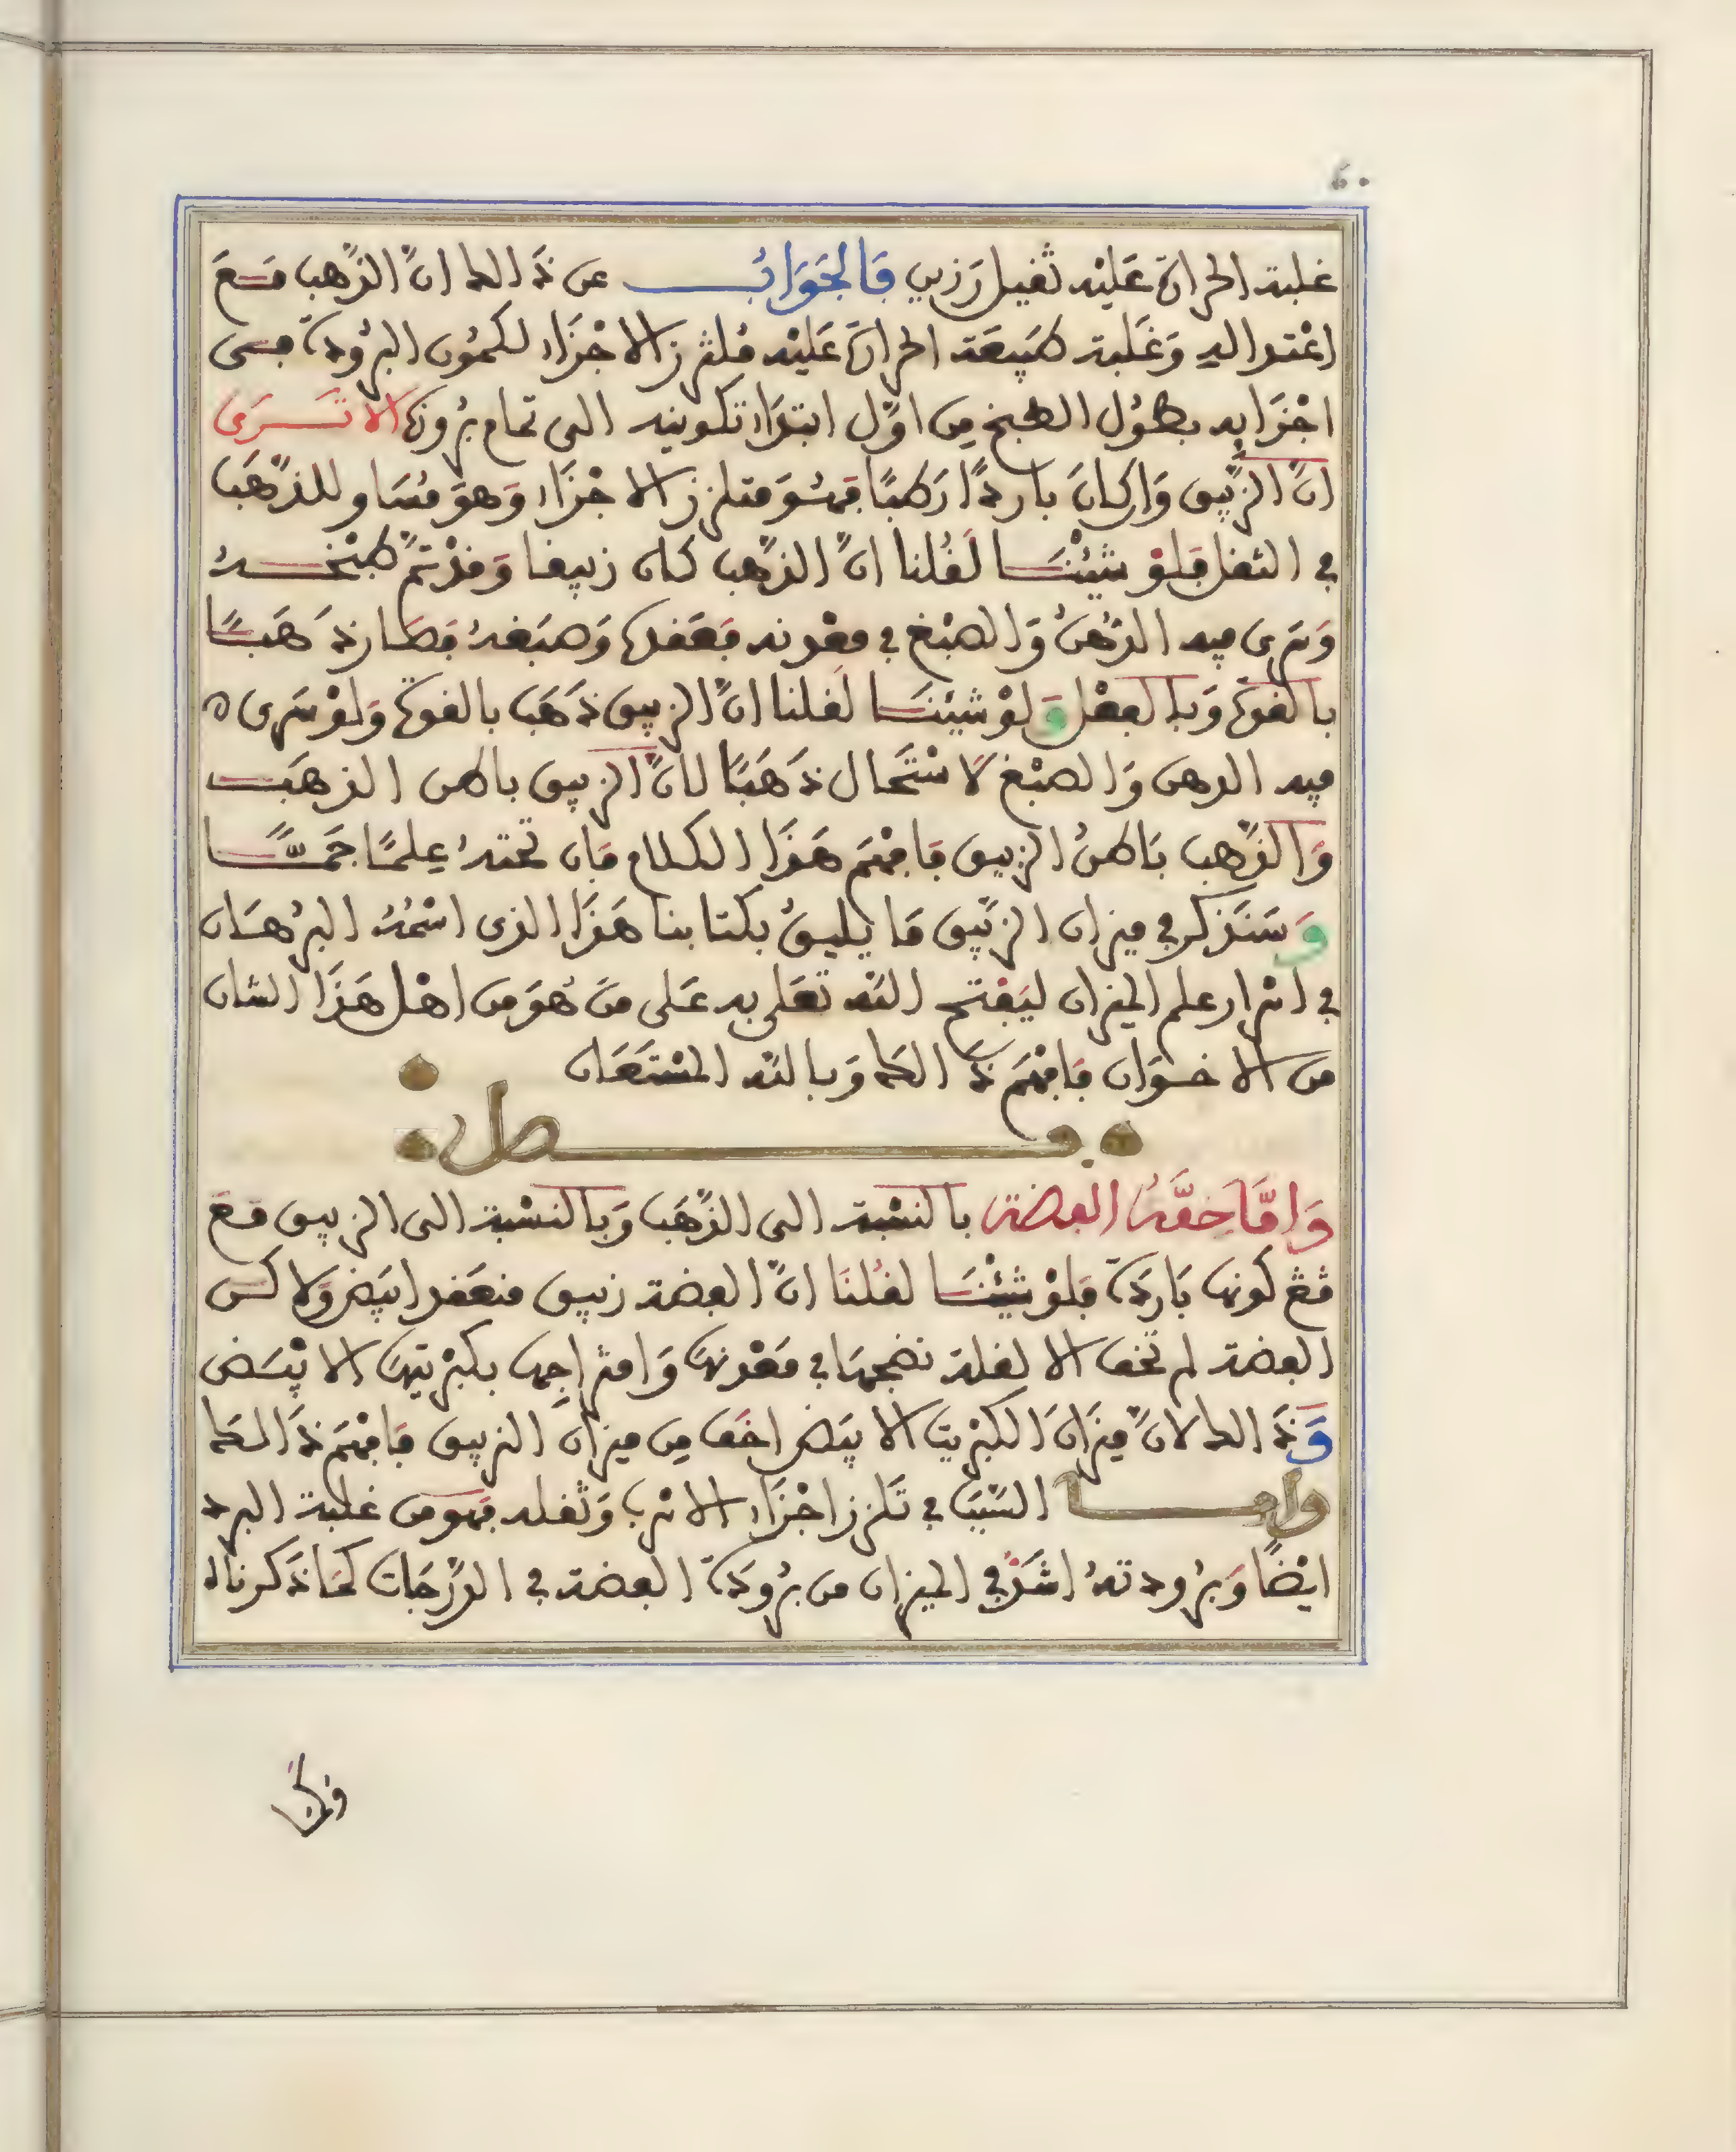 غلبة الحرارة عَلَيْه ثقيل رَزين فَالجَوَابُ عن ذَالك انَّ الذَّهب مَعَ
اعْتدالهِ وَغَلبة طَبِيعَة الحرارة عَلَيْه مُلتزز الاجْزَاء لكمُون البرُودة فى
اجْزَايه بطُول الطبخ مِن اوَّل ابتدَاء تكوينه الى تمام بُرُوزه الا تَرَى
انَّ الزَّيبق وَان كانَ باردًا رَطبًا فَهُوَ متلزز الاجْزَاء وَهوَ مُسَاو للذَّهَب
في الثقل فَلَوْ شيئْنَا لَقُلنا انَّ الذَّهب كان زيبقا وَقدْ تمَّ طبْخُهُ
وَسَرى فيه الدُّهنُ وَالصِّبْغ في معْدنه فَعَقده وَصَبَغهُ فصَار ذَهَبًا
بالقوة وَبالفعْل وَلَوْ شيئنَا لَقلنا انَّ الزيبق ذَهَب بالقوة وَلوْ سَرى
فيه الدهن وَالصبْغ لَاسْتَحَال ذَهَبًا لانَّ الزيبق باطن الذهَب
وَالذَّهب بَاطنُ الزيبق فَافهَم هَذَا الكلام فَان تحتهُ عِلمًا جَمًّا
وَسَنَذكر في ميزان الزَّيبق مَا يليقُ بكتابنا هَذَا الذى اسْمُهُ البرُهَان
في اسْرار علم الميزان ليَفتح اللَّه تعَلى به عَلى مَنْ هُوَ من اهْل هَذَا الشان
من الاخوَان فَافهَم ذَالك وَبالله المُسْتَعَان
فصل
وَامَّا خفَّةُ الفضة بالنسْبة الى الذَّهَب وَبالنسْبة الى الزيبق مَعَ
مَعَ كونها بَاردَة فَلوْ شيئْنَا لقُلنَا انَّ الفضة زيبق منعَقد ابيَض وَلاكن
الفضة لم تخف الا لقلة نضجهَا في مَعْدنهَا وَامتزاجها بكبْريتهَا الابْيَض
وَذَالك لانَّ ميزَانَ الكبْريت الابيَض اخَف مِن ميزَان الزيبق فَافهَم ذَالك
وامـا السَّبَب في تَلزز اجْزَاء الاسْرب وَثقله فهو من غلبة البرد
ايْضًا وَبرُودتهُ اشَدُّ في الميزان من بُرُودَة الفضة في الدَّرَجَات كمَا ذَكرناه